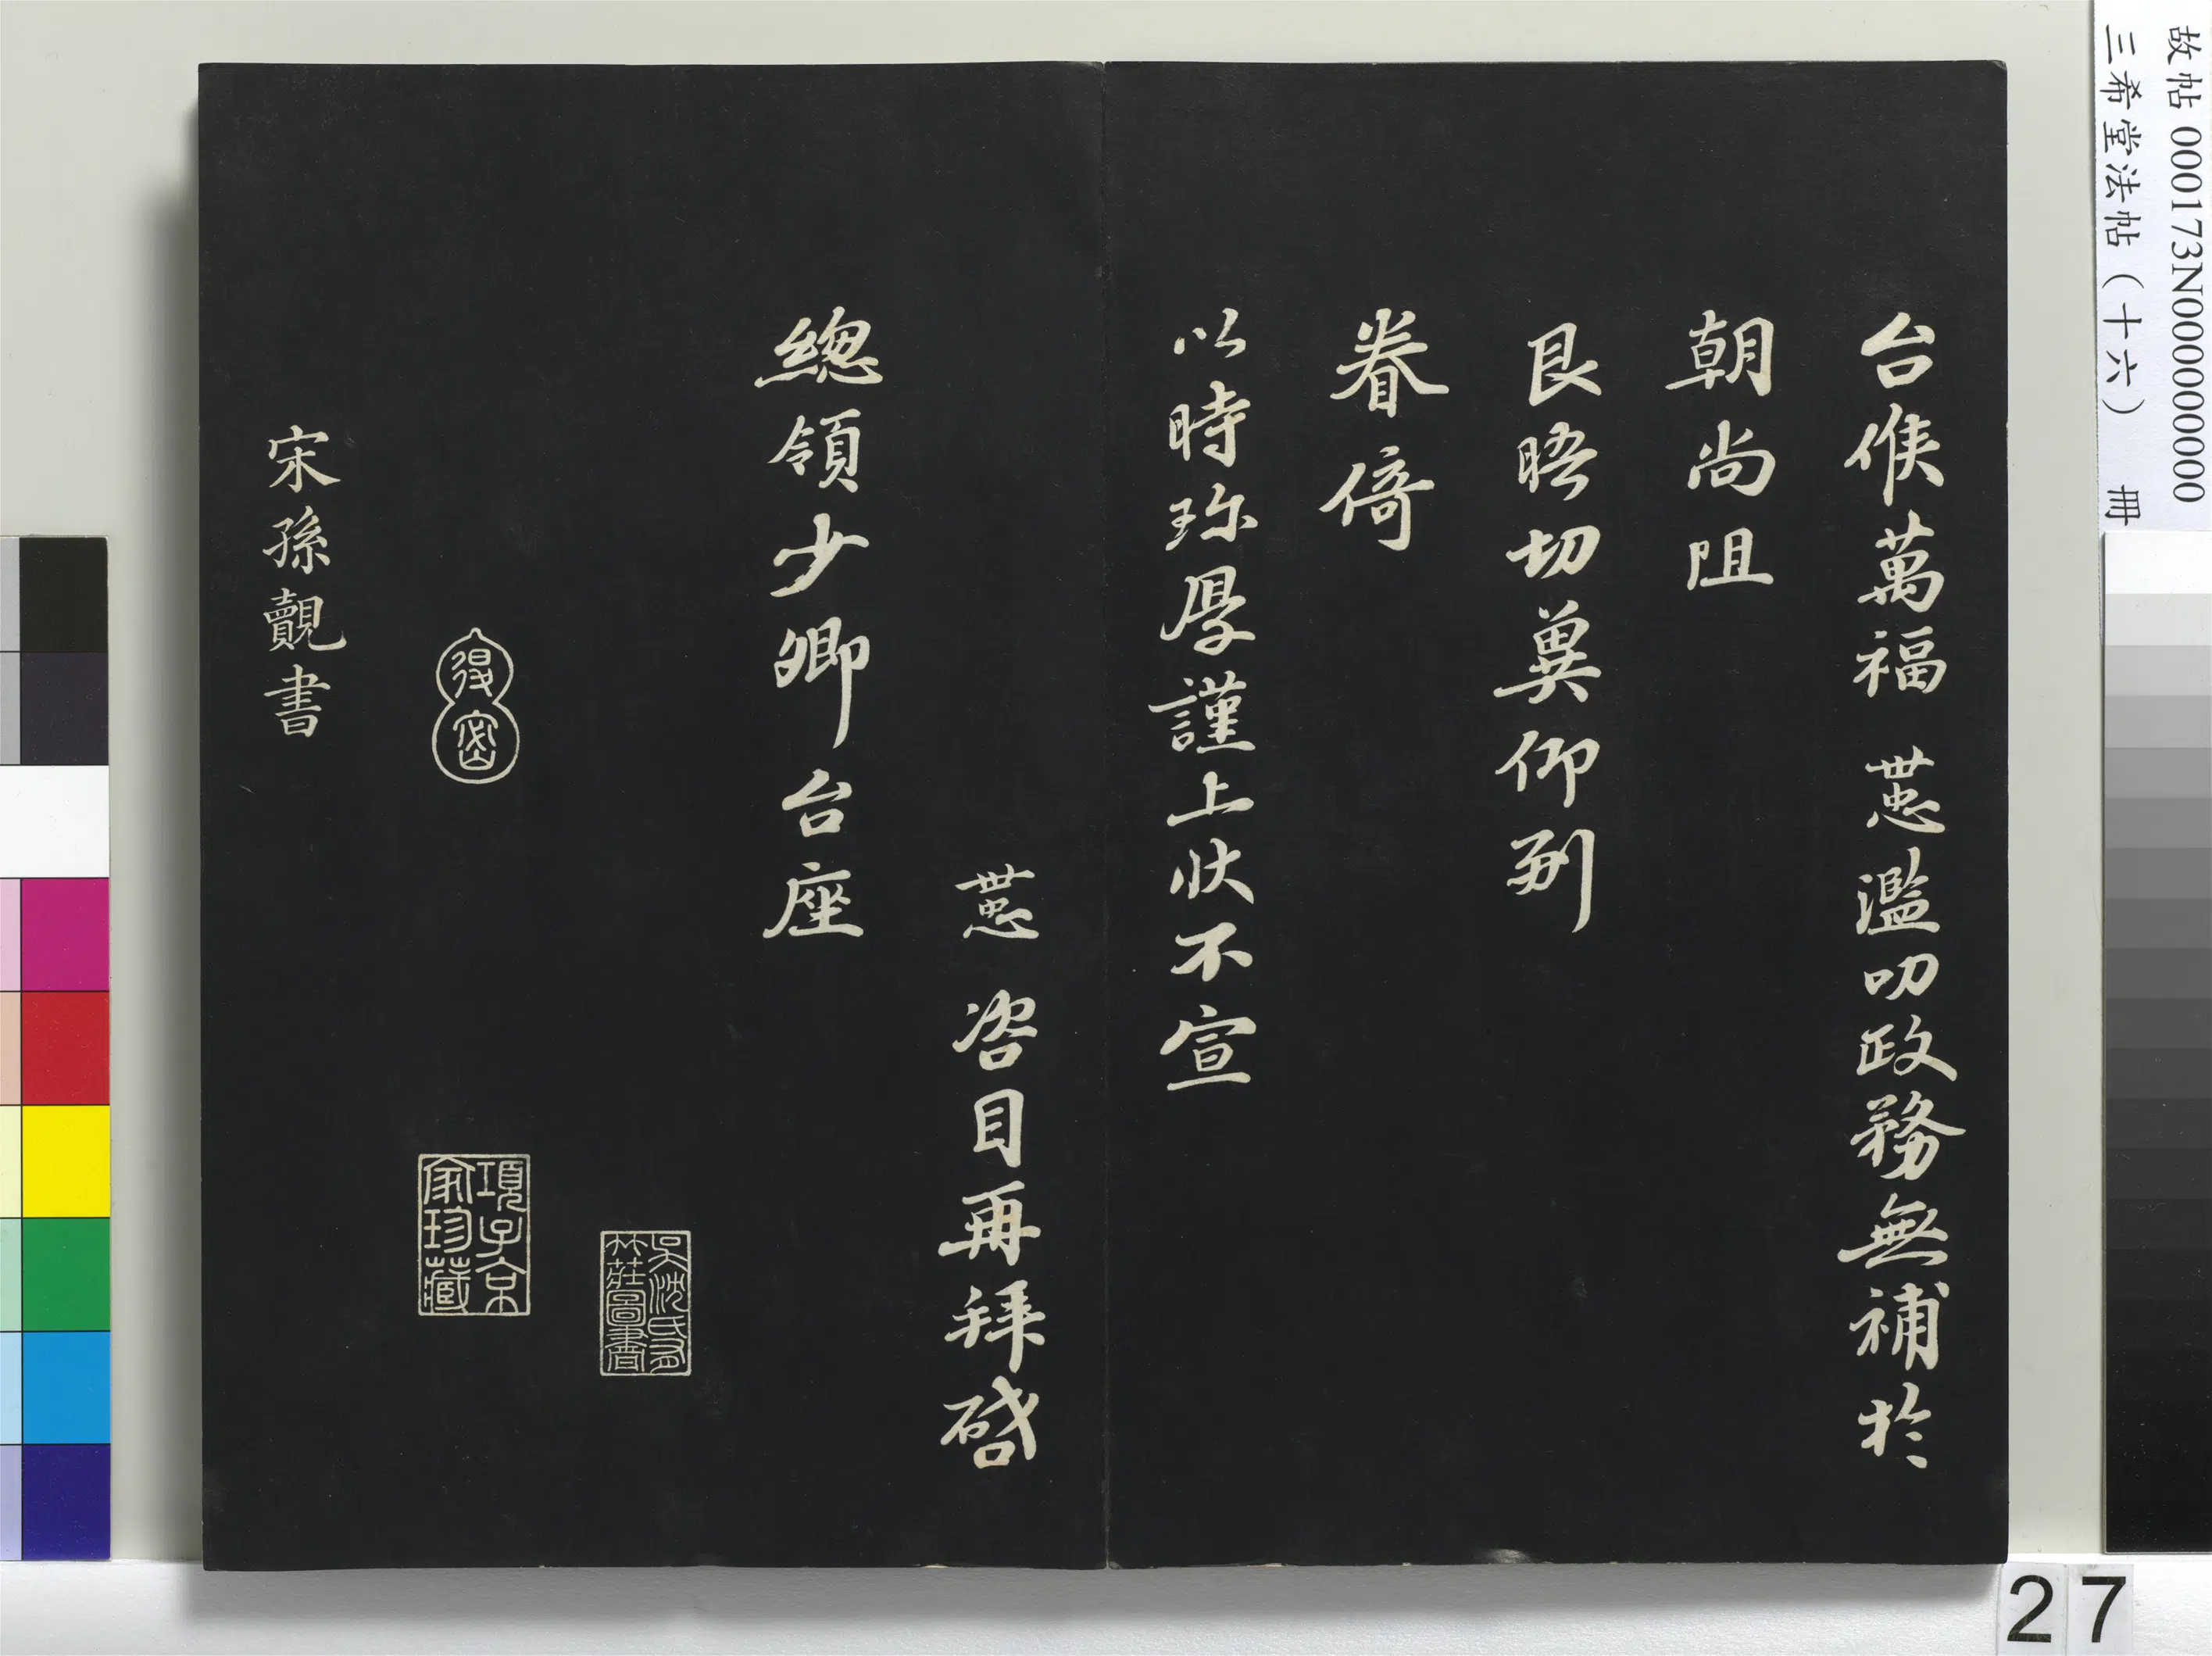 台候萬福 㤼濫叨政務無補於
朝尚阻
良晤切冀仰副
眷倚
以時珎厚謹上狀不宣
咨目再拜啓
總領少卿台座
得密
項子京家珍藏
宋孫覿書
故帖 000173N000000000
三希堂法帖（十六） 冊
27